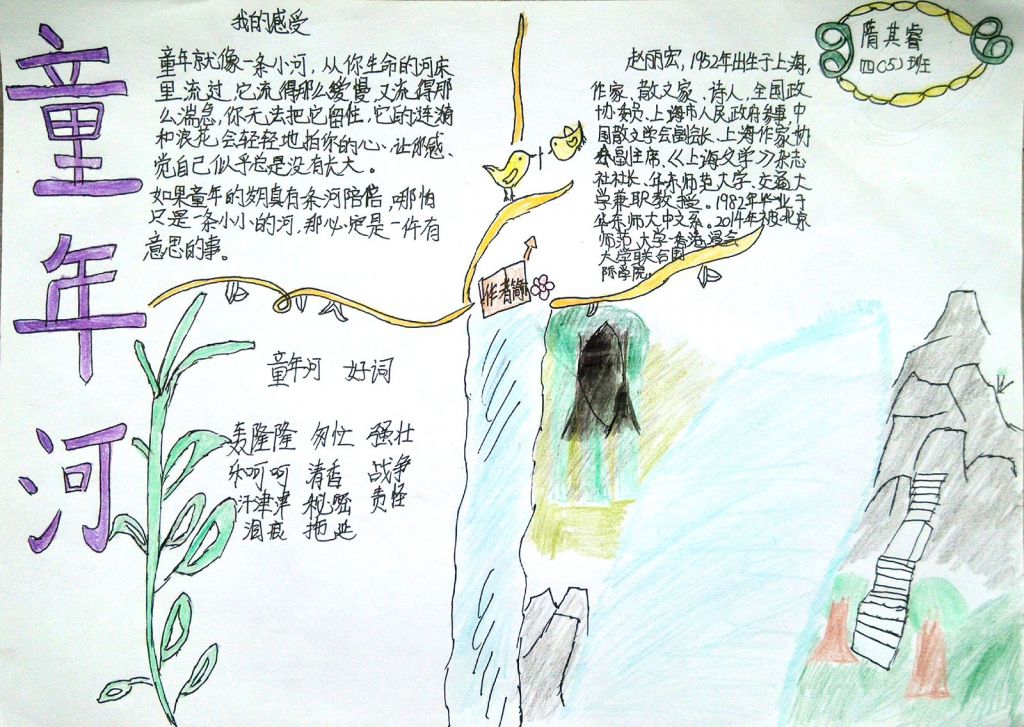 童年河
我的感受
童年就像一条小河，从你生命的河床
里流过，它流得那么缓慢，又流得那
么湍急，你无法把它留住，它的涟漪
和浪花会轻轻地拍你的心、让那感、
觉自己似乎总是没有长大。
如果童年的岁月真有条河陪倍，哪怕
只是一条小小的河，那必定是一件有
意思的事。
童年河 好词
轰隆隆 匆忙 强壮
乐呵呵 清香 战争
汗津津 秘密 责怪
泪痕 拖延
作者简介
赵丽宏，1952年出生于上海，
作家、散文家、诗人、全国政
协委员、上海市人民政府参事，中
国散文学会副会长、上海作家协
会副主席、《上海文学》杂志
社社长、华东师范大学、交通大
学兼职教授。1982年毕业于
华东师大中文系。2014年被北京
师范大学-香港浸会
大学联合国
际学院。
隋其睿
四(5)班